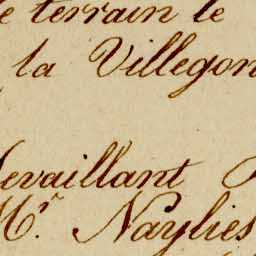 terrain le
la Villegon
levaillant
Mr. Naylies